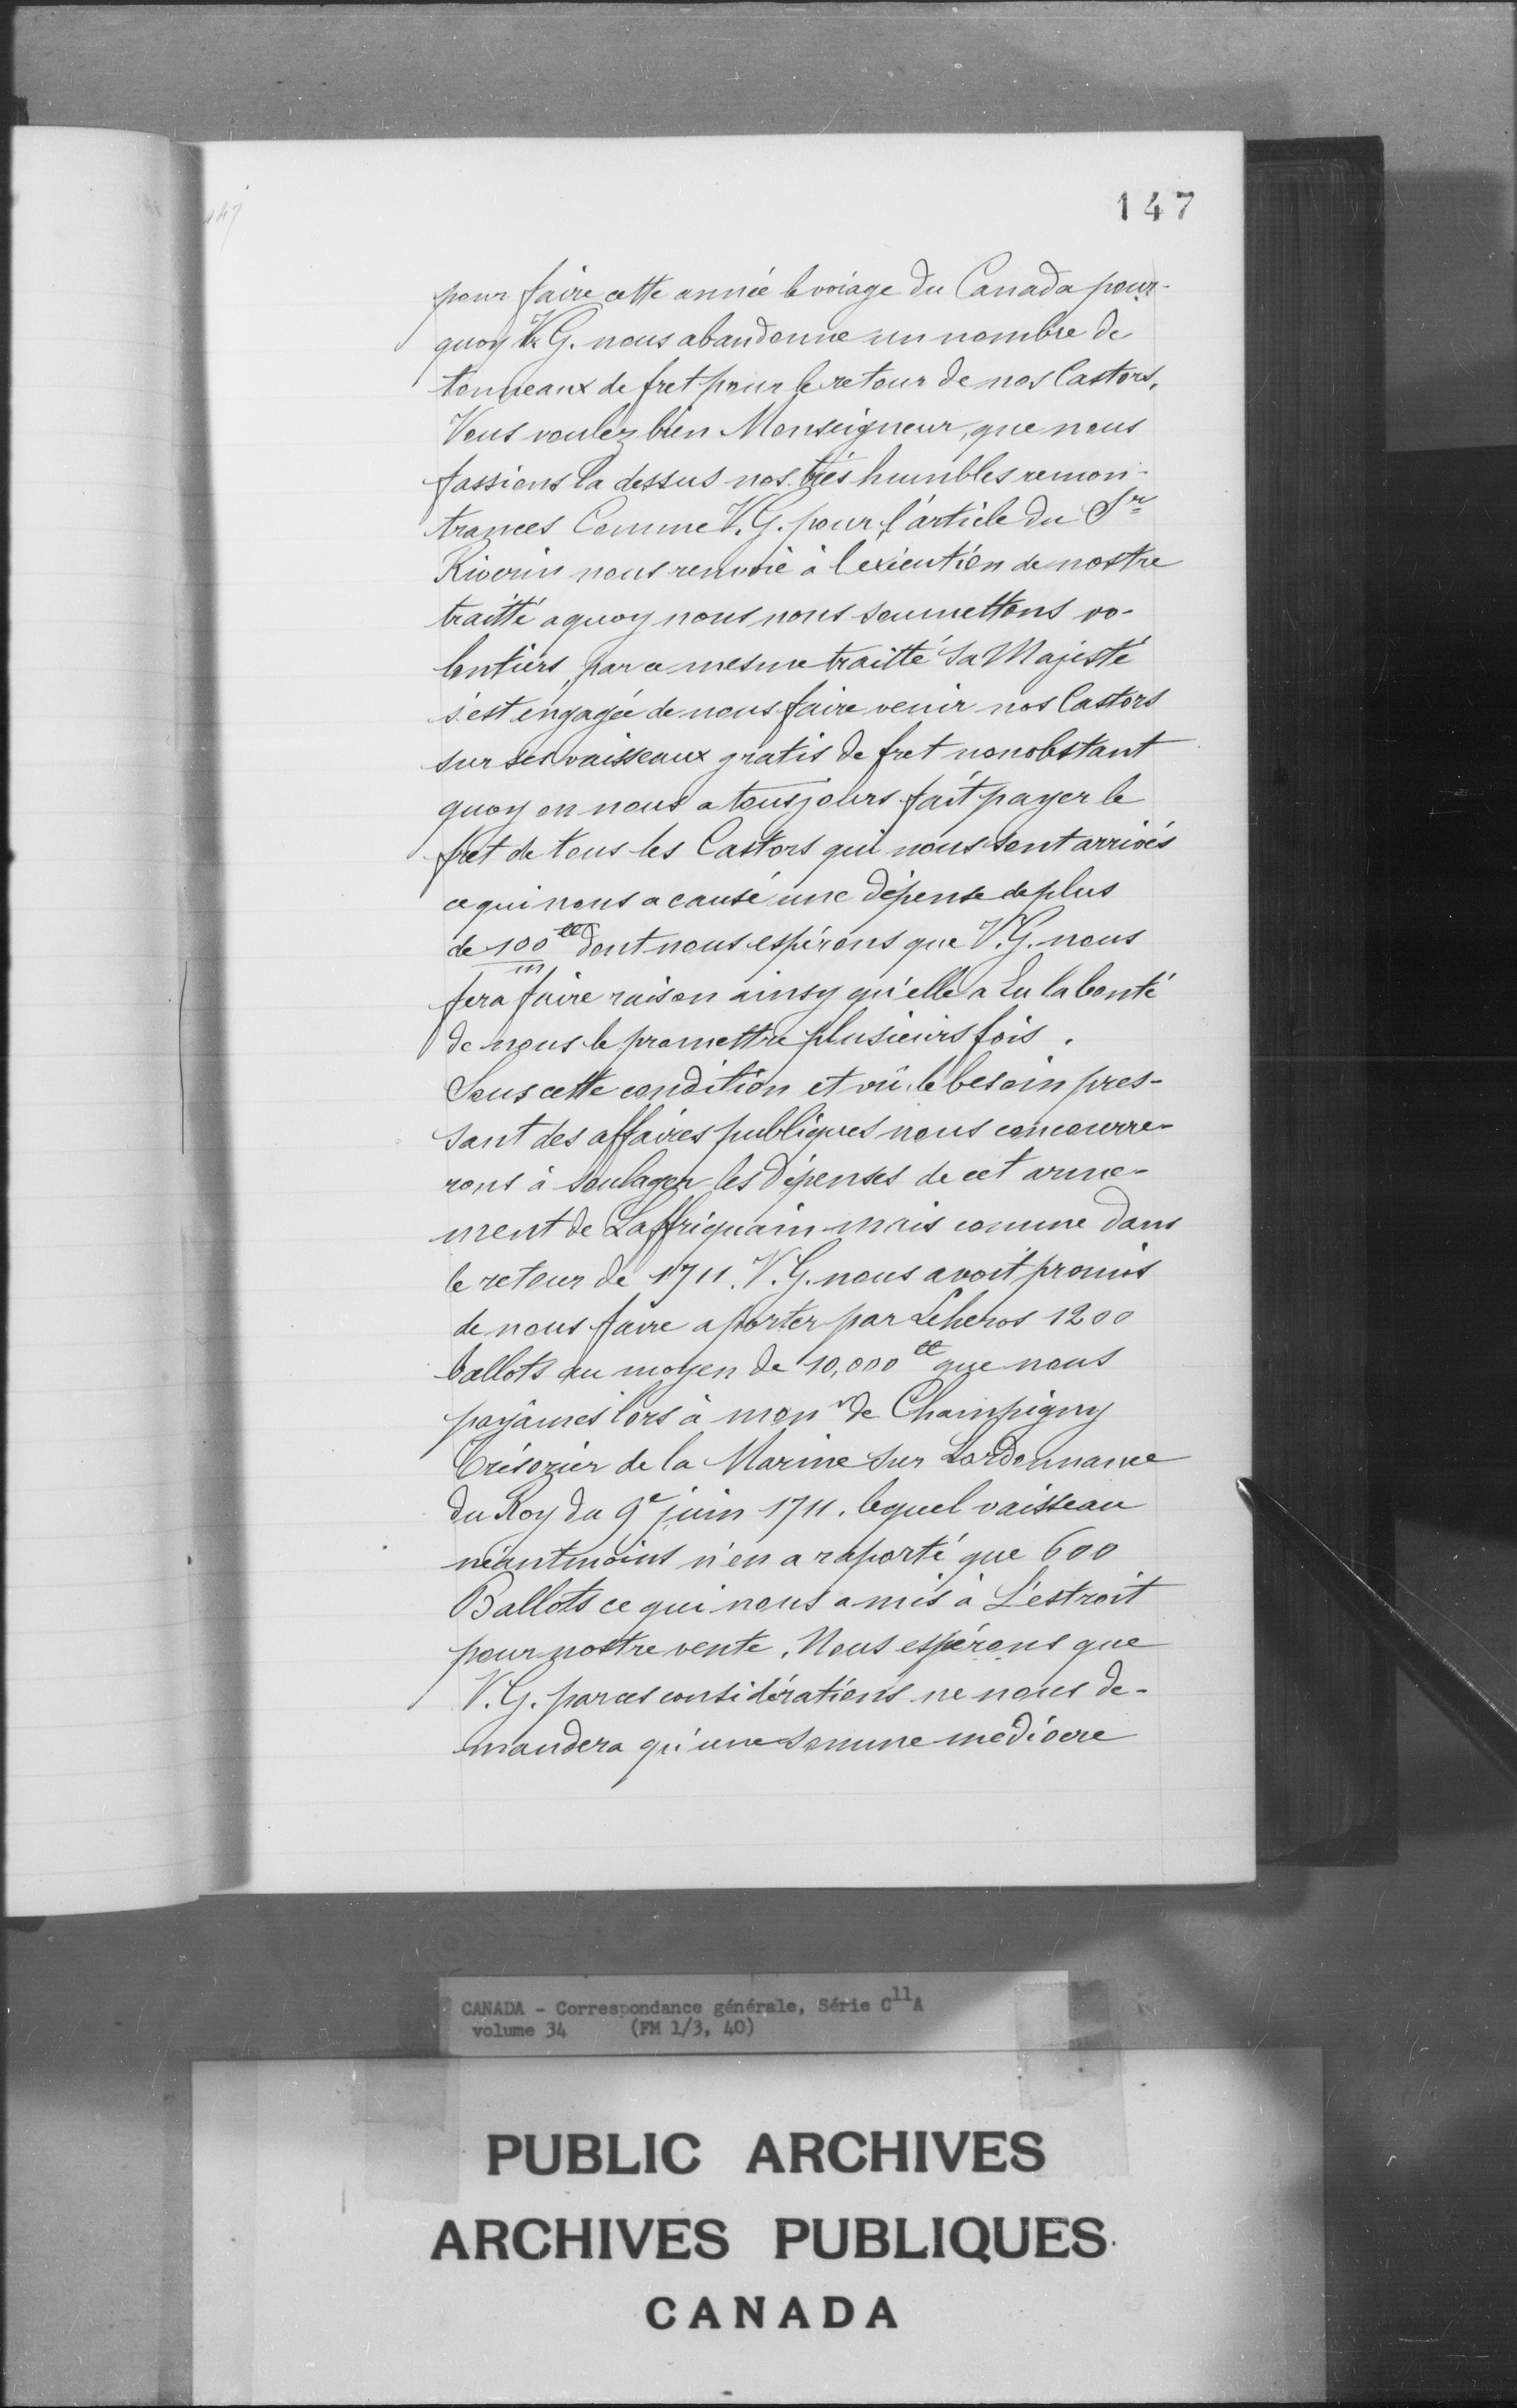 147
147
pour faire cette année le voiage du Canada pour-
quoy V.G. nous abandonne un nombre de
tonneaux de fret pour le retour de nos Castors.
Vous voulez bien Monseigneur, que nous
fassions la dessus nos très humbles remon-
trances Comme V.G. pour l'article du Sr
Riverin nous renvoie à l'exécution de nostre
traitté a quoy nous nous soumettons vo-
lontiers, par ce mesme traitté Sa Majesté
s'est engagée de nous faire venir nos Castors
sur ses vaisseaux gratis de fret nonobstant
quoy on nous a tousjours fait payer le
fret de tous les Castors qui nous sont arrivés
ce qui nous a causé une dépense de plus
de 100 m ₶ dont nous espérons que V.G. nous
fera faire raison ainsy qu'elle a Eu la bonté
de nous le promettre plusieurs fois.
Sous cette condition et vû le besoin pres-
sant des affaires publiques nous concourre-
rons à soulager les dépenses de cet arme-
ment de Laffriquain mais comme dans
le retour de 1711. V.G. nous avoit promis
de nous faire aporter par Leheros 1200
ballots au moyen de 10,000 ₶ que nous
payâmes lors à monr de Champigny
Trésorier de la Marine sur Lordonnance
du Roy du 9e juin 1711. lequel vaisseau
néantmoins n'en a raporté que 600
Ballots ce qui nous a mis à L'estroit
pour nostre vente. Nous espérons que
V.G. par ces considérations ne nous de-
mandera qu'une somme médiocre
CANADA - Correspondance générale, Série C11A
volume 34 (FM 1/3, 40)
PUBLIC ARCHIVES
ARCHIVES PUBLIQUES
CANADA